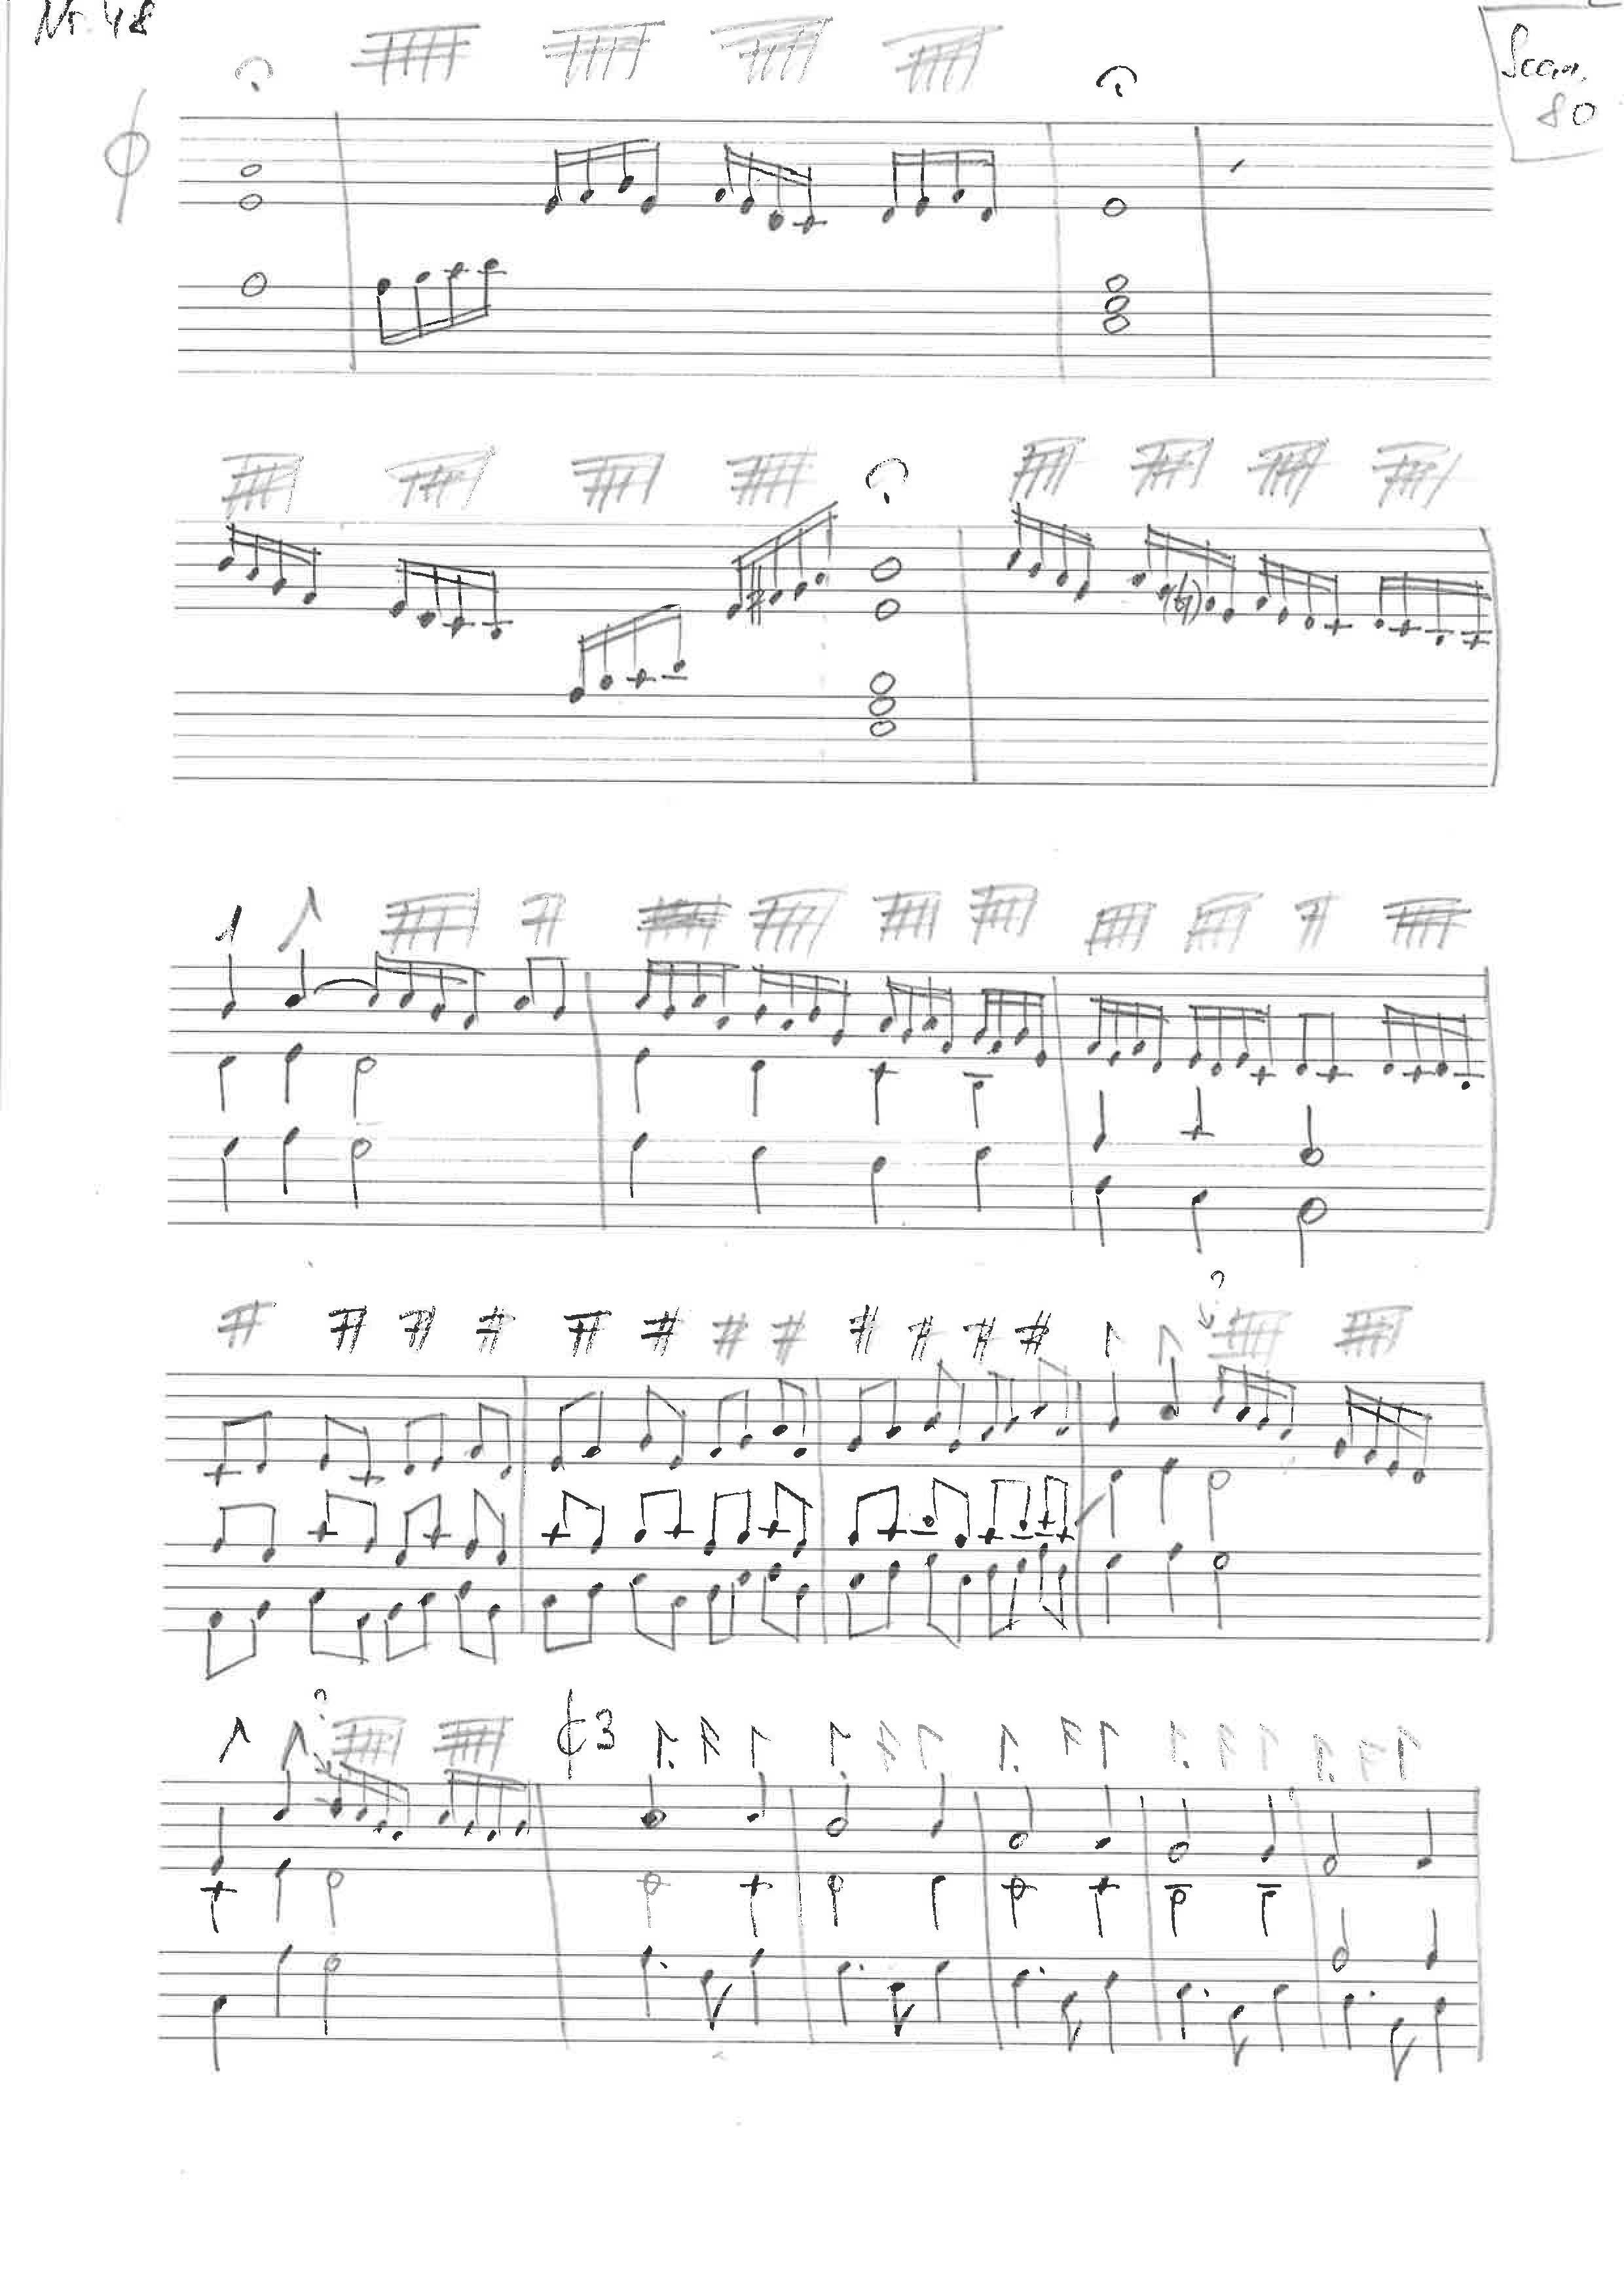 Nr. 48
Scan.
80
?
?
¢3